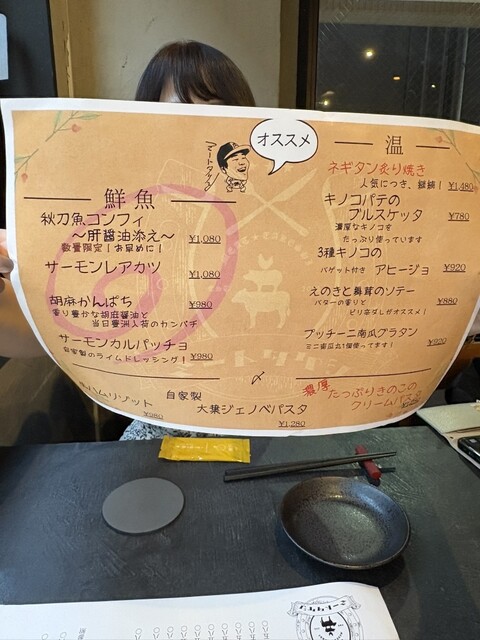 オススメ
鮮魚
秋刀魚コンフィ
～肝醤油添え～
数量限定！お早めに！
¥1,080
サーモンレアカツ
¥1,080
胡麻かんぱち
¥980
香り豊かな胡麻醤油と
当日豊洲入荷のカンパチ
サーモンカルパッチョ
自家製のライムドレッシング！
¥980
温
ネギタン炙り焼き
人気につき、継続！
¥1,480
キノコパテの
ブルスケッタ
¥780
濃厚なキノコを
たっぷり使っています
3種キノコの
バゲット付き アヒージョ
¥920
えのきと舞茸のソテー
バターの香りと
ピリ辛ダレがオススメ！
¥880
プッチーニ南瓜グラタン
ミニ南瓜丸1個使ってます！
¥920
〆
生ハムリゾット
¥980
自家製
大葉ジェノベパスタ
¥1,280
濃厚
たっぷりきのこの
クリームパスタ